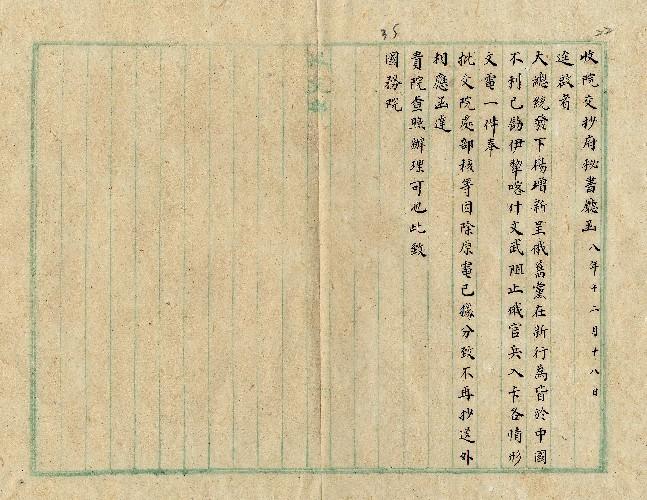 35
22
收院交抄府秘書廳函 八年十二月十八日
逕啟者
大總統發下楊增新呈俄舊黨在新行為皆於中國
不利已飭伊犂喀什文武阻止俄官兵入卡各情形
文電一件奉
批交院處部核等因除原電已據分致不再抄送外
相應函達
貴院查照辦理可也此致
國務院